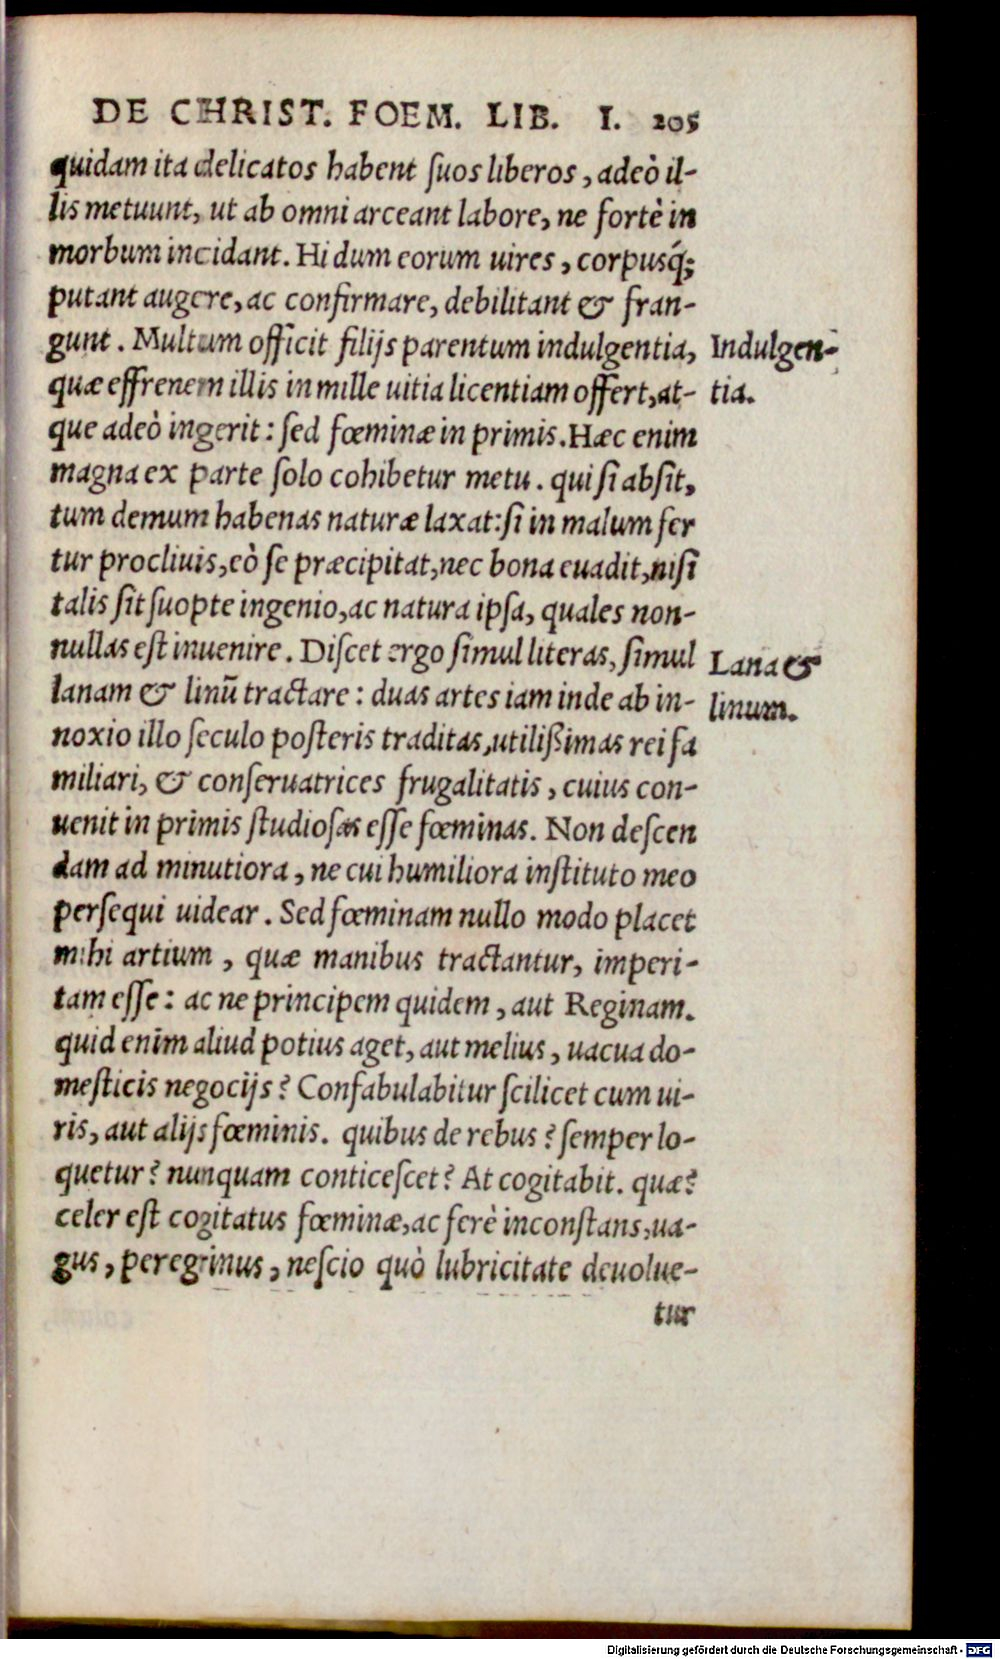 DE CHRIST. FOEM. LIB. I. 205
quidam ita delicatos habent ſuos liberos, adeò il-
lis metuunt, ut ab omni arceant labore, ne fortè in
morbum incidant. Hi dum eorum uires, corpusq́;
putant augere, ac confirmare, debilitant & fran-
gunt. Multum officit filijs parentum indulgentia,
Indulgen-
quæ effrenem illis in mille uitia licentiam offert, at-
tia.
que adeò ingerit: ſed fœminæ in primis. Hæc enim
magna ex parte ſolo cohibetur metu. qui ſi abſit,
tum demum habenas naturæ laxat: ſi in malum fer
tur procliuis, eò ſe præcipitat, nec bona euadit, niſi
talis ſit ſuopte ingenio, ac natura ipſa, quales non-
nullas eſt inuenire. Diſcet ergo ſimul literas, ſimul
Lana &
lanam & linū tractare: duas artes iam inde ab in-
linum.
noxio illo ſeculo poſteris traditas, utilißimas rei fa
miliari, & conſeruatrices frugalitatis, cuius con-
uenit in primis ſtudioſas eſſe fœminas. Non deſcen
dam ad minutiora, ne cui humiliora inſtituto meo
perſequi uidear. Sed fœminam nullo modo placet
mihi artium, quæ manibus tractantur, imperi-
tam eſſe: ac ne principem quidem, aut Reginam.
quid enim aliud potius aget, aut melius, uacua do-
meſticis negocijs? Confabulabitur ſcilicet cum ui-
ris, aut alijs fœminis. quibus de rebus? ſemper lo-
quetur? nunquam conticeſcet? At cogitabit. quæ?
celer eſt cogitatus fœminæ, ac ferè inconſtans, ua-
gus, peregrinus, neſcio quò lubricitate deuolue-
tur
Digitalisierung gefördert durch die Deutsche Forschungsgemeinschaft - DFG